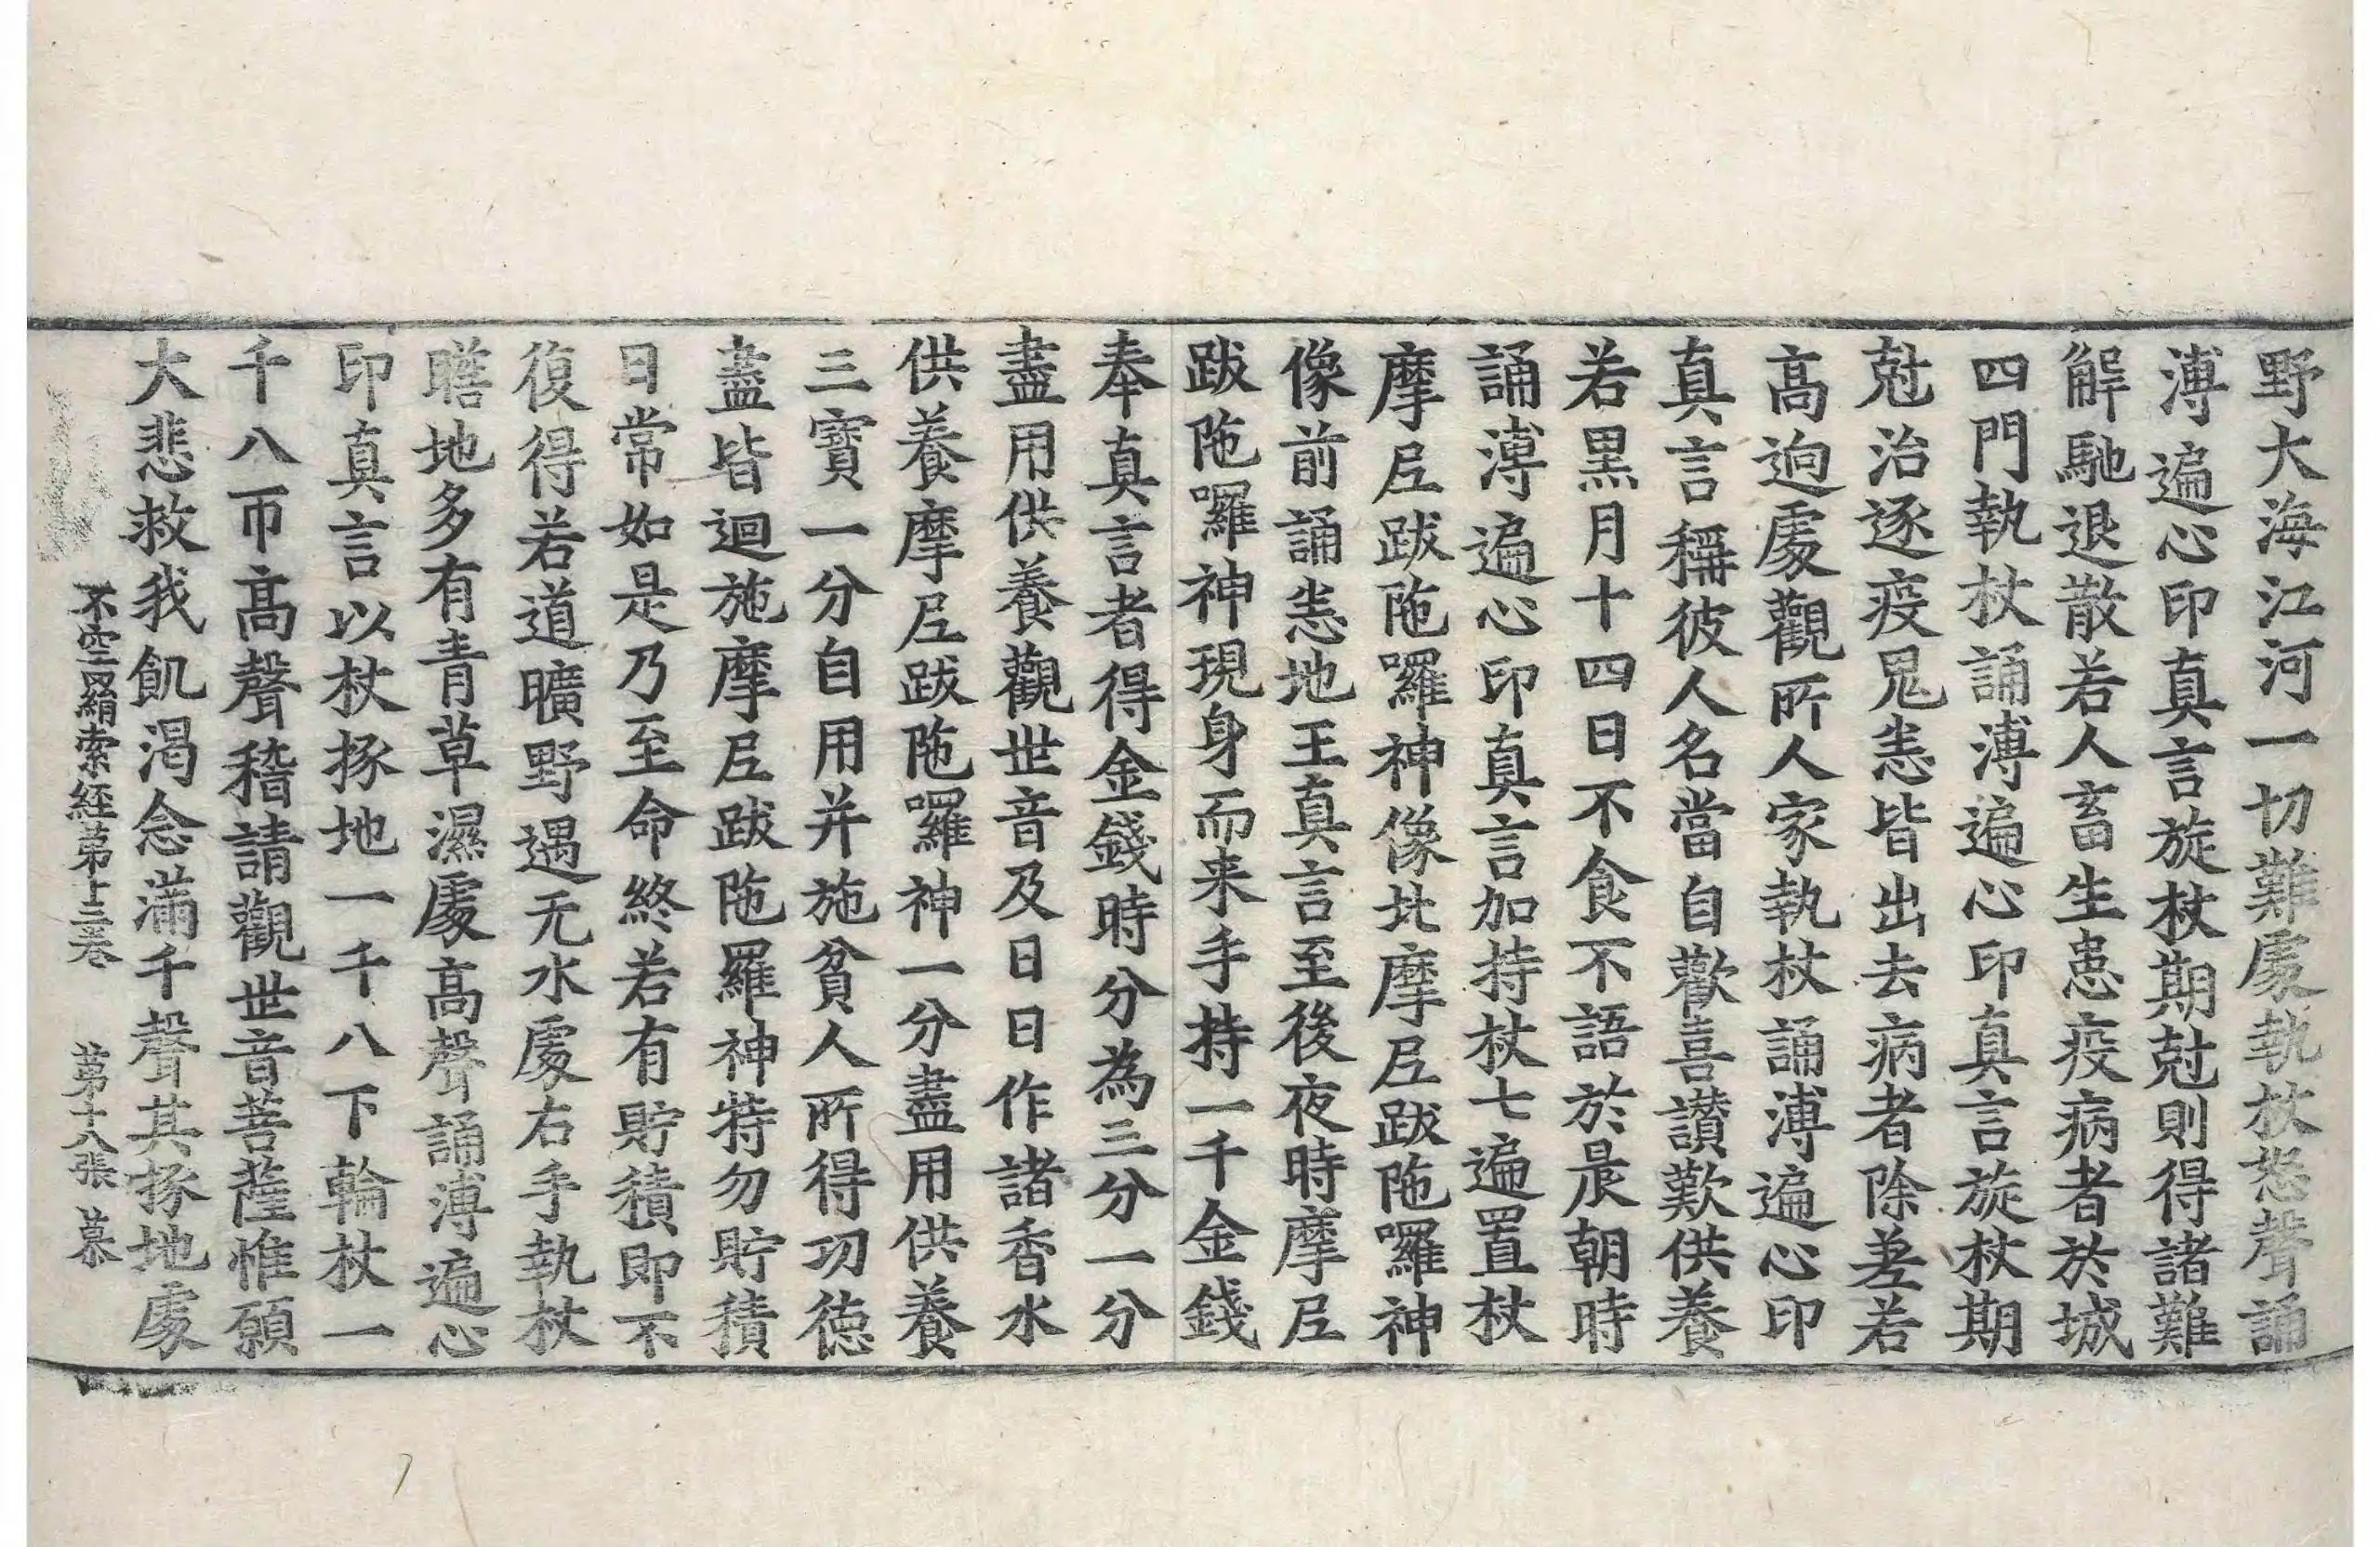 野大海江河一切難處執杖怒聲誦
溥遍心印真言旋杖期尅則得諸難
解馳退散若人畜生患疫病者於城
四門執杖誦溥遍心印真言旋杖期
尅治逐疫鬼恙皆出去病者除差若
高逈處觀所人家執杖誦溥遍心印
真言稱彼人名當自歡喜讃歎供養
若黒月十四日不食不語於晨朝時
誦溥遍心印真言加持杖七遍置杖
摩尼跋陁囉神像此摩尼跋陁囉神
像前誦恙地王真言至後夜時摩尼
跋陁囉神現身而来手持一千金錢
奉真言者得金錢時分為三分一分
盡用供養觀世音及日日作諸香水
供養摩尼跋陁囉神一分盡用供養
三寳一分自用并施貧人所得功德
盡皆迴施摩尼跋陁羅神特勿貯積
日常如是乃至命終若有貯積即不
復得若道曠野遇无水處右手執杖
瞎地多有青草濕處高聲誦溥遍心
印真言以杖拯地一千八下輪杖一
千八帀高聲稽請觀世音菩薩惟願
大悲救我飢渴念滿千聲其拯地處
不空罥索經第十二卷 第十八張 慕